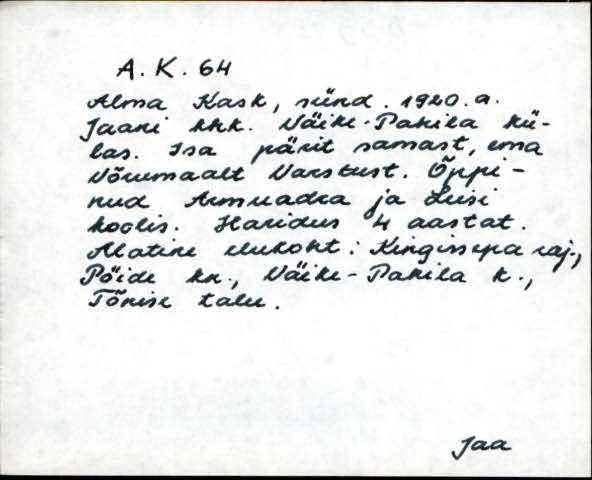 A. K. 64
Alma Kask, sünd. 1920. a.
Jaani khk. Väike-Pahila kü-
las. Isa pärit samast, ema
Võrumaalt Varstust. Õppi-
nud Armuadra ja Leisi
koolis. Haridus 4 aastat.
Alatine elukoht: Kingissepa raj.,
Pöide kn., Väike-Pahila k.,
Tõnise talu.
Jaa